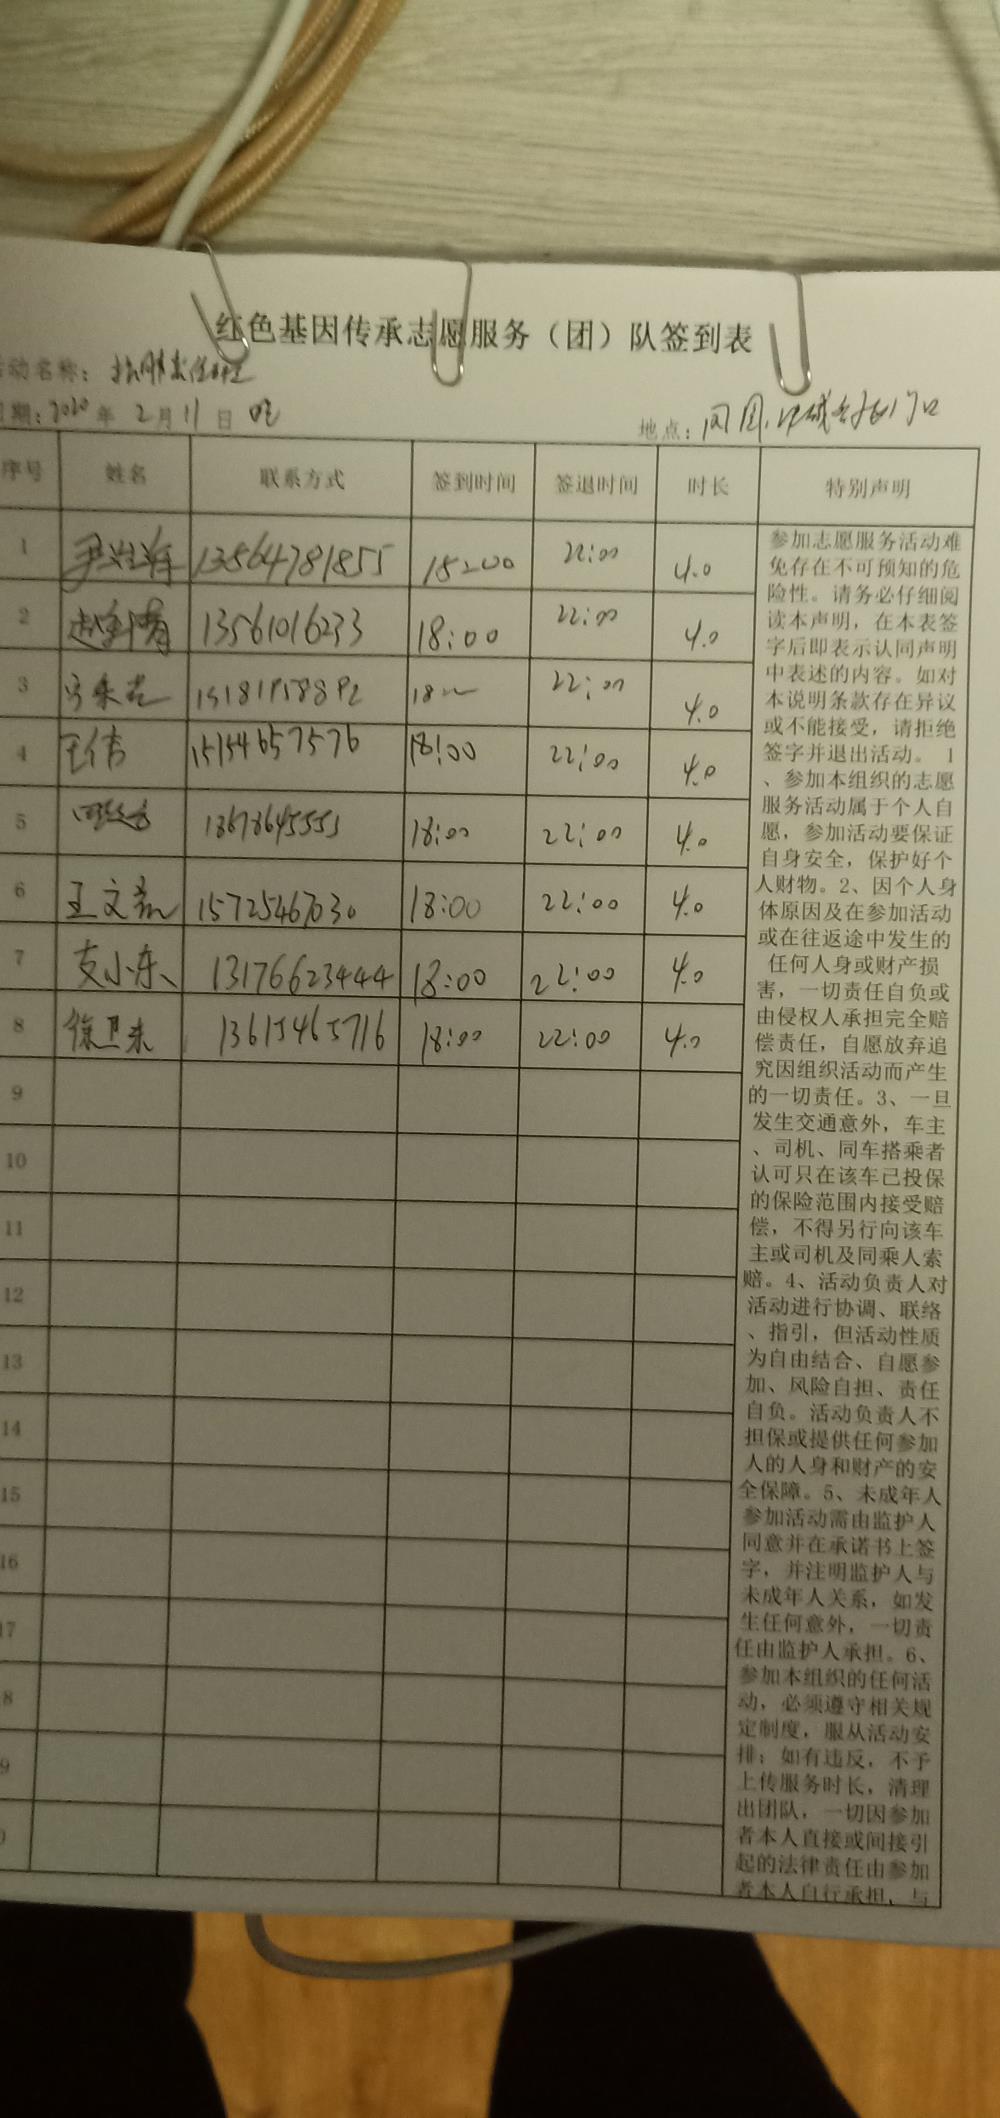 红色基因传承志愿服务（团）队签到表
动名称：
期：2020年 2月11日
地点：
序号 姓名 联系方式 签到时间 签退时间 时长 特别声明
1 13564781855 18:00 22:00 4.0
2 13561016233 18:00 22:00 4.0
3 22:00 4.0
4 王伟 15154657576 18:00 22:00 4.0
5 18678645555 18:00 22:00 4.0
6 王文 15725467030 18:00 22:00 4.0
7 支小东 13176623444 18:00 22:00 4.0
8 徐卫东 13615465716 18:00 22:00 4.0
9
10
11
12
13
14
15
16
17
8
9
参加志愿服务活动难
免存在不可预知的危
险性。请务必仔细阅
读本声明，在本表签
字后即表示认同声明
中表述的内容。如对
本说明条款存在异议
或不能接受，请拒绝
签字并退出活动。 1
、参加本组织的志愿
服务活动属于个人自
愿，参加活动要保证
自身安全，保护好个
人财物。2、因个人身
体原因及在参加活动
或在往返途中发生的
任何人身或财产损
害，一切责任自负或
由侵权人承担完全赔
偿责任，自愿放弃追
究因组织活动而产生
的一切责任。3、一旦
发生交通意外，车主
、司机、同车搭乘者
认可只在该车已投保
的保险范围内接受赔
偿，不得另行向该车
主或司机及同乘人索
赔。4、活动负责人对
活动进行协调、联络
、指引，但活动性质
为自由结合、自愿参
加、风险自担、责任
自负。活动负责人不
担保或提供任何参加
人的人身和财产的安
全保障。5、未成年人
参加活动需由监护人
同意并在承诺书上签
字，并注明监护人与
未成年人关系，如发
生任何意外，一切责
任由监护人承担。6、
参加本组织的任何活
动，必须遵守相关规
定制度，服从活动安
排；如有违反，不予
上传服务时长，清理
出团队，一切因参加
者本人直接或间接引
起的法律责任由参加
者本人自行承担，与